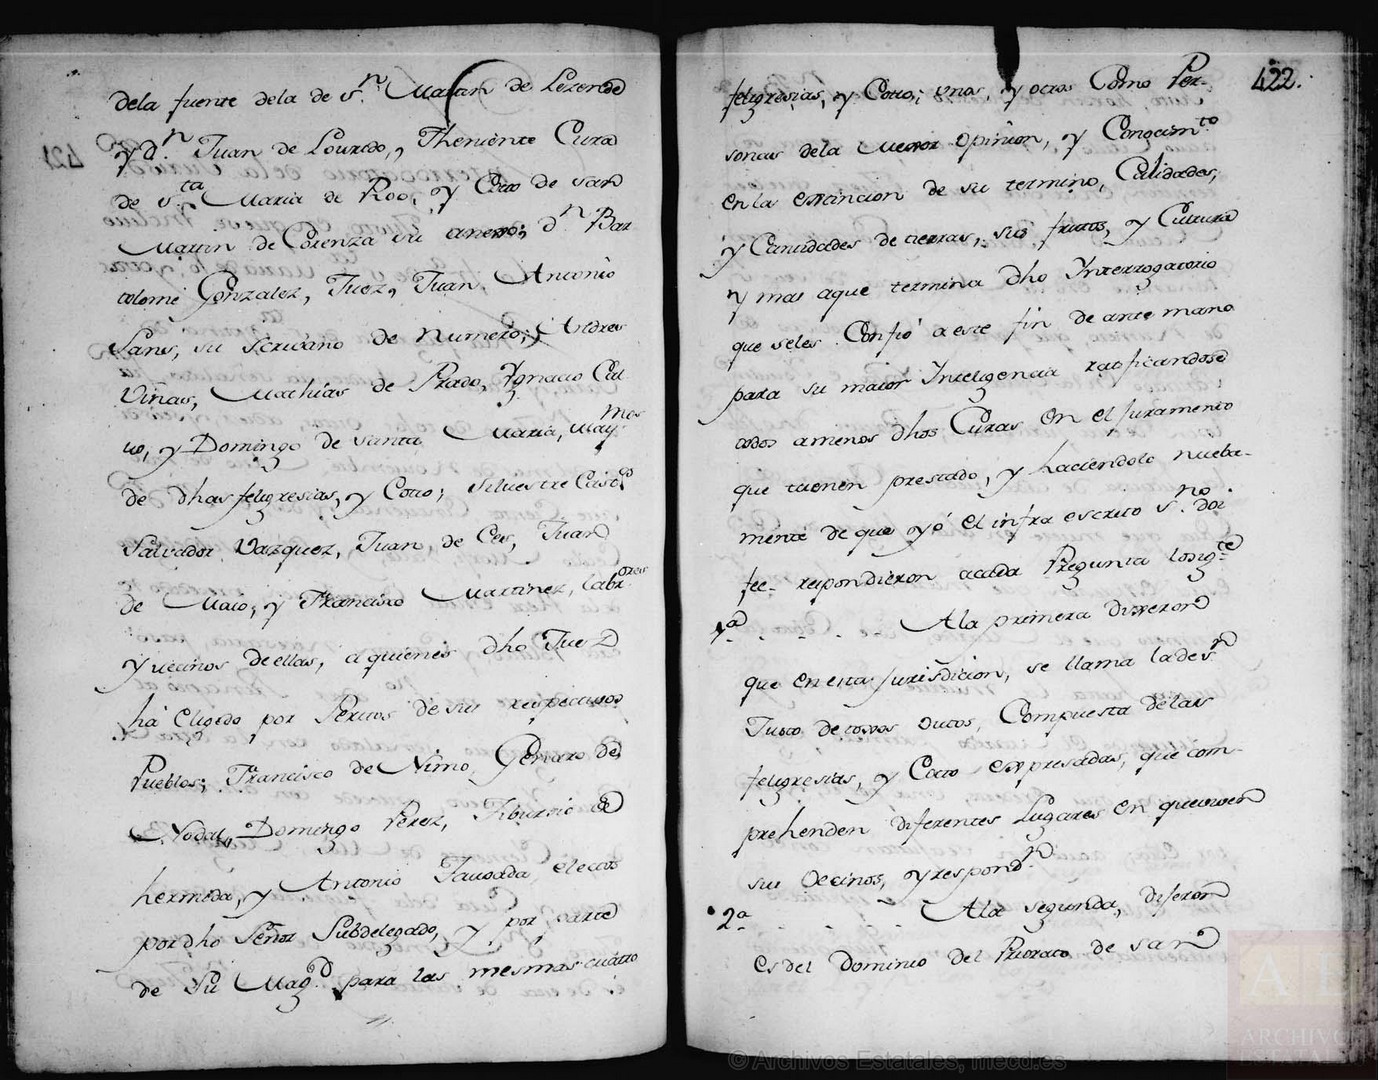 dela fuente dela de S.n Martin de Lezende
y d.n Juan de Louredo, Theniente Cura
de S.ta Maria de Roo, y Coto de san
Martin de Corenza su anexo; d.n Bar
tolomé Gonzalez, Juez, Juan Antonio
Sans, su Scrivano de Numero; Andres
Viñas, Mathías de Prado, Ygnacio Cal
vo, y Domingo de Santa Maria, May.mos
de dhas feligresias, y Coto; Silvestre Cast.o
Salvador Vazquez, Juan, de Ces, Juan
de Mato, y Francisco Martinez, labr.ores
y vecinos de ellas, a quienes dho Juez
há Eligido por Peritos de sus respectivos
Pueblos; Francisco de Nimo, Genaro de
Nodal, Domingo Perez, Tiburzio de
hermida, y Antonio Tavoada electos
por dho Señor Subdelegado, y por parte
de Su Mag.d para las mesmas cuatro
422.
feligresias, y Coto; unos, y otros Como Per-
sonas dela mejor opinion, y Conocim.to
en la extincion de su termino, Calidades,
y Cantidades de tierras, sus frutos, y Cultura
y mas aque termina dho Ynterrogatorio
que seles Confió a este fin de ante mano
para su maior Ynteligencia ratificandose
todos amenos dhos Curas en el Juramento
que tienen prestado, y haciendolo nueba-
mente de que yo el infra escrito S.no doi
fee- respondieron acada Pregunta lo sig.te
1.a Ala primera dixeron
que en esta Jurisdicion, se llama la de S.n
Justo de tojos outos, Compuesta delas
feligresias, y Coto expresadas, que com-
prehenden diferentes Lugares en que viven
sus Vecinos, y respond.n
2.a Ala segunda, dijeron
es del Dominio del Priorato de san
© Archivos Estatales, mecd.es
AE
ARCHIVOS
ESTATALES